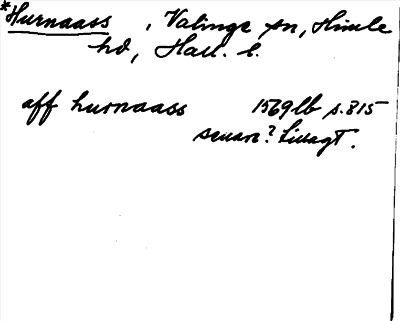 *Hurnaass , Valinge sn, Himle
hd, Hall. l.
aff hurnaass 1569 lb s. 815
senare? Livagt.